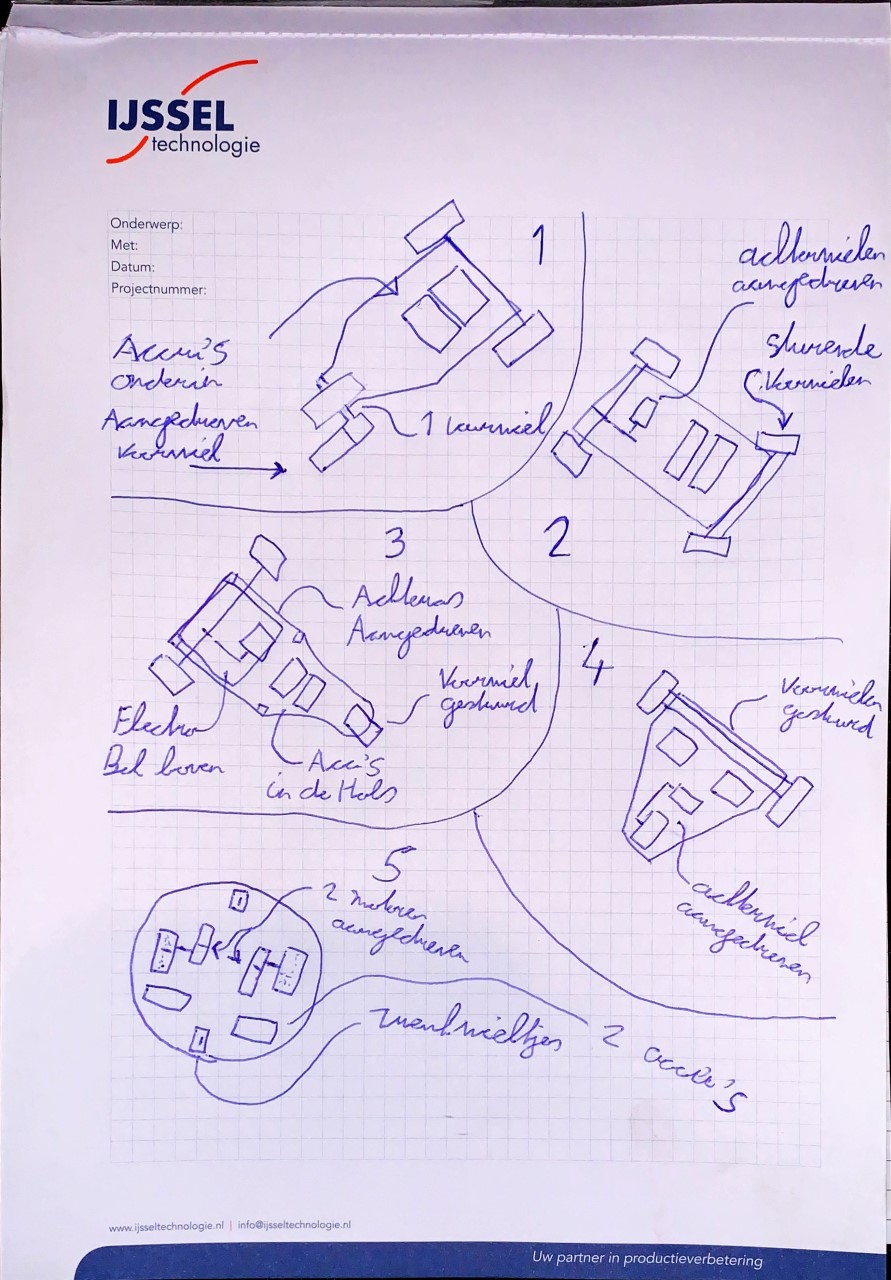 IJSSEL
technologie
Onderwerp:
Met:
Datum:
Projectnummer:
1
Accu's
onderin
Aangedreven
voorwiel
1 voorwiel
achterwielen
aangedreven
Sturende
Voorwielen
2
3
Achteras
Aangedreven
Voorwiel
gestuurd
Electro
Bel boven
Accu's
in de Hols
4
Voorwielen
gestuurd
achterwiel
aangedreven
5
2 motoren
aangedreven
zwenkwieltjes
2 accu's
www.ijsseltechnologie.nl | info@ijsseltechnologie.nl
Uw partner in productieverbetering